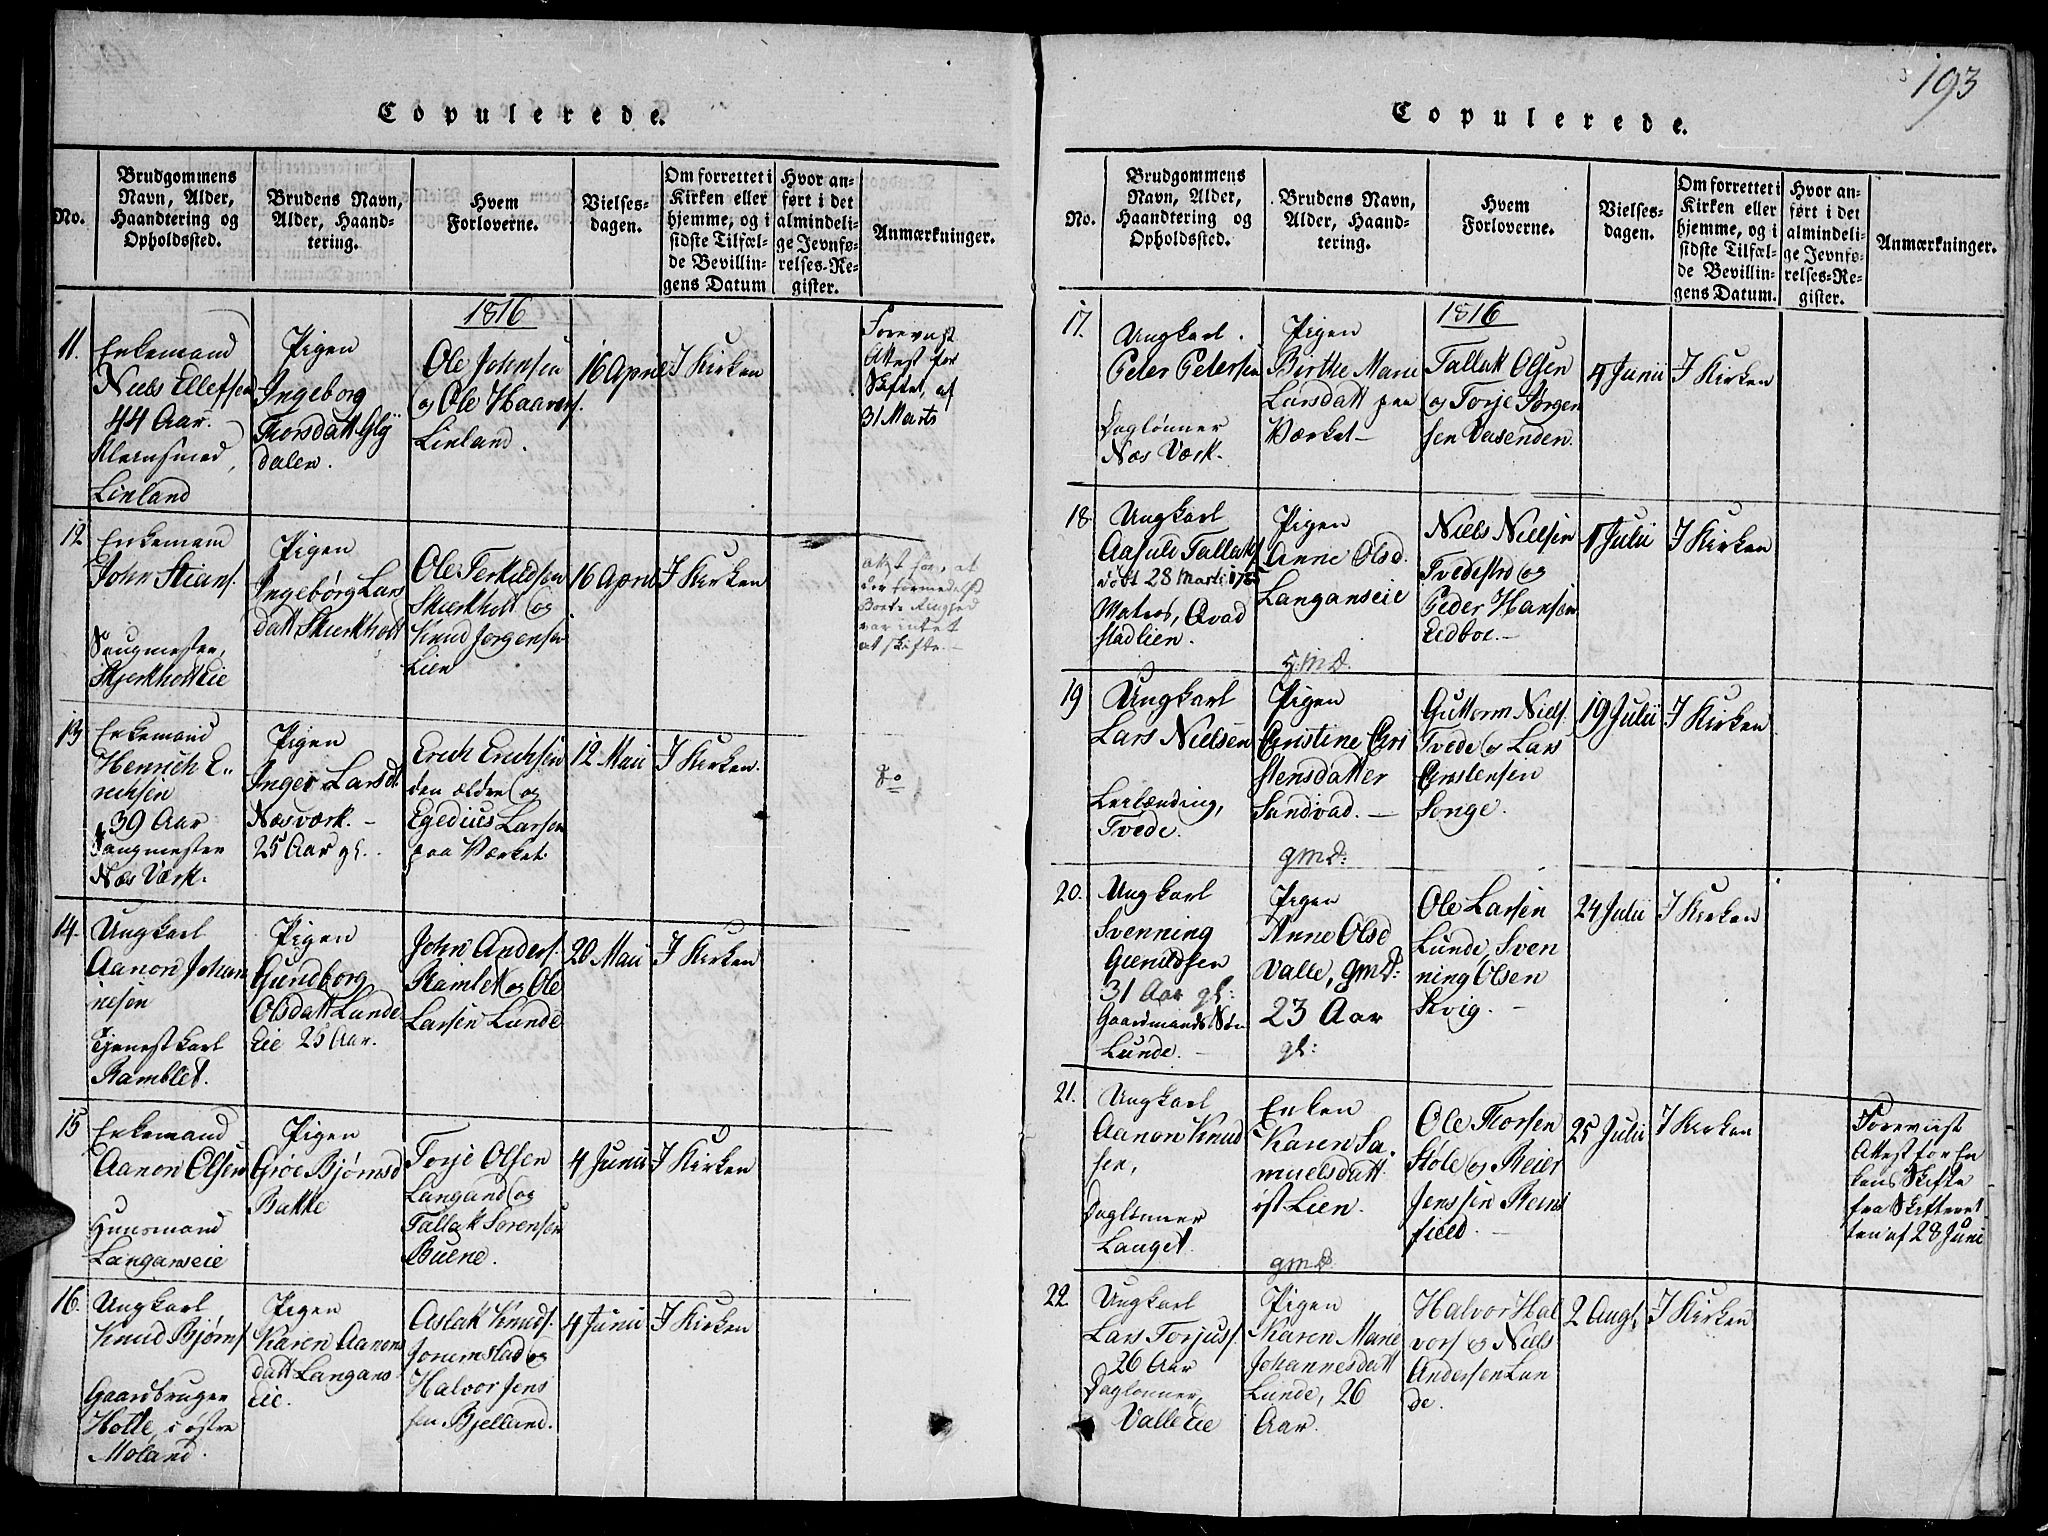 193
Copulerede.
No.
Brudgommens
Navn, Alder,
Haandtering og
Opholdssted.
Brudens Navn,
Alder, Haand-
tering.
Hvem
Forloverne.
Vielses-
dagen.
Om forrettet i
Kirken eller
hjemme, og i
sidste Tilfæl-
de Bevillin-
gens Datum
Hvor an-
ført i det
almindeli-
ge Jevnfø-
relses-Re-
gister.
Anmærkninger.
1816
11.
Enkemand
Niels Ellefsen
44 Aar.
Klernsmed,
Linland
Pigen
Ingeborg
Thorsdatt Gly
dalen.
Ole Johnsen
og Ole Haavors.
Linland.
16 April
I Kirken
Forevist
Attest for
Skiftet, af
31 Marts
12
Enkemand
John Stians.
Saugmester,
Skjerkholt Eie
Pigen
Ingebørg Lars
datt Skierkholt
Ole Terkildsen
Skierkholt og
Knud Jørgensen
Lien
16 April
I Kirken
Attest for, at
der formedelst
Boets Ringhed
var intet
at skifte.
13
Enkemand
Henrich E..
richsen
39 Aar
Saugmester
Næs Værk.
Pigen
Inger Larsdt
Næsværk. -
25 Aar gl.
Erich Erichsen
den ældre og
Egedius Larsen
paa Værket.
12 Maii
I Kirken.
do
14.
Ungkarl
Aanon Johan
nesen
Tjenestkarl
Ramblet.
Pigen
Gundborg
Olsdatt Lunde
Eie 25 Aar.
John Anders.
Ramlet og Ole
Larsen Lunde
20 Maii
I Kirken
15
Enkemand
Aanon Olsen
Huusmand
Langanseie
Pigen
Groe Bjørnsd
Bakke
Torje Olsen
Langand og
Tallak Sørensen
Buene.
4 Junii
I Kirken
16.
Ungkarl
Knud Bjørns.
Gaardbruger
Holte, i østre
Moland.
Pigen
Karen Aanons
datt Langans
Eie.
Aslak Knuds.
Jorumstad og
Halvor Jens
sen Bjelland.
4 Junii
I Kirken
Copulerede.
No.
Brudgommens
Navn, Alder,
Haandtering og
Opholdssted.
Brudens Navn,
Alder, Haand-
tering.
Hvem
Forloverne.
Vielses-
dagen.
Om forrettet i
Kirken eller
hjemme, og i
sidste Tilfæl-
de Bevillin-
gens Datum.
Hvor an-
ført i det
almindeli-
ge Jevnfø-
relses-Re-
gister.
Anmærkninger.
1816
17.
Ungkarl.
Peter Petersen
Daglønner
Næs Værk.
Pigen
Birthe Marie
Larsdatt paa
Værket -
Tallak Olsen
og Torje Jørgen
sen Vasenden.
4 Junii
I Kirken
18.
Ungkarl
Aasuld Tallaks
født 28 Marti 1785
Matros, Qvad
stadlien.
Pigen
Anne Olsd.
Langanseie
Niels Nielsen
Tvedestrd og
Peder Hansen
Eidboe. -
1 Julii
I Kirken
19
Ungkarl
Lars Nielsen
Leilænding,
Tvede.
gmd.
Pigen
Christine Chri
stensdatter
Sandvad. -
Guttorm Niels.
Tvede og Lars
Christensen
Songe.
19 Julii
I Kirken
20.
Ungkarl
Svenning
Gunildsen
31 Aar gl:
Gaardmands Søn
Lunde. -
gmd:
Pigen
Anne Olsd
Valle, gmd:
23 Aar
gl:
Ole Larsen
Lunde, Sven
ning Olsen
Skvig. -
24 Julii
I Kirken
21.
Ungkarl
Aanon Knud
sen,
Daglønner
Langet.
Enken
Karen Sa
muelsdatt
øst Lien.
Ole Thorsen
Stole og Reier
Jenssen Reins
field. -
25 Julii
I Kirken
Foreviist
Attest for En
kens Skifte
fra Skifteret
ten af 28 Juni
22
Ungkarl
Lars Torjuss.
26 Aar
Daglønner,
Valle Eie
gmd.
Pigen
Karen Marie
Johannesdatt
Lunde, 26
Aar.
Halvor Hal
vors og Niels
Andersen Lun
de.
2 Aug.
I Kirken